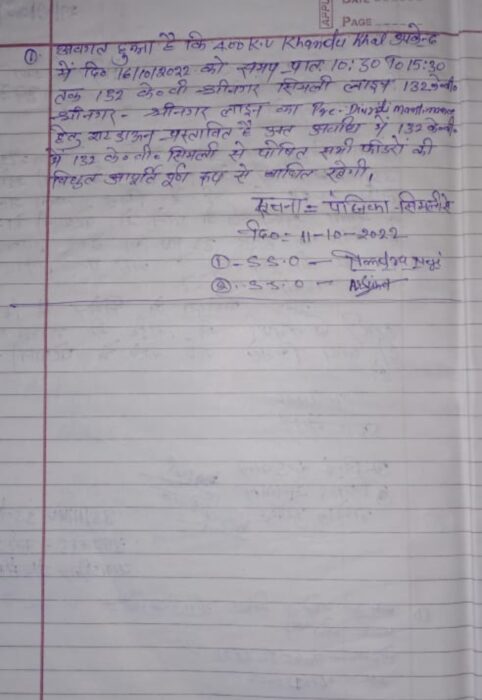 DATE
PAGE
① अवगत हुआ है कि 400 K.V Khandu Khal
में दि० 16/10/2022 को समय प्रातः 10:30 से 15:30
तक 132 के०वी श्रीनगर सिमली लाइन 132 के०वी०
श्रीनगर - श्रीनगर लाइन का
हेतु शटडाउन प्रस्तावित है उक्त अवधि में 132 के०वी०
में 132 के० वी० सिमली से पोषित सभी फीडरों की
विद्युत आपूर्ति पूर्ण रूप से बाधित रहेगी।
सूचना = सिमली से
दि० = 11-10-2022
① - S.S.O -
② - S.S.O -